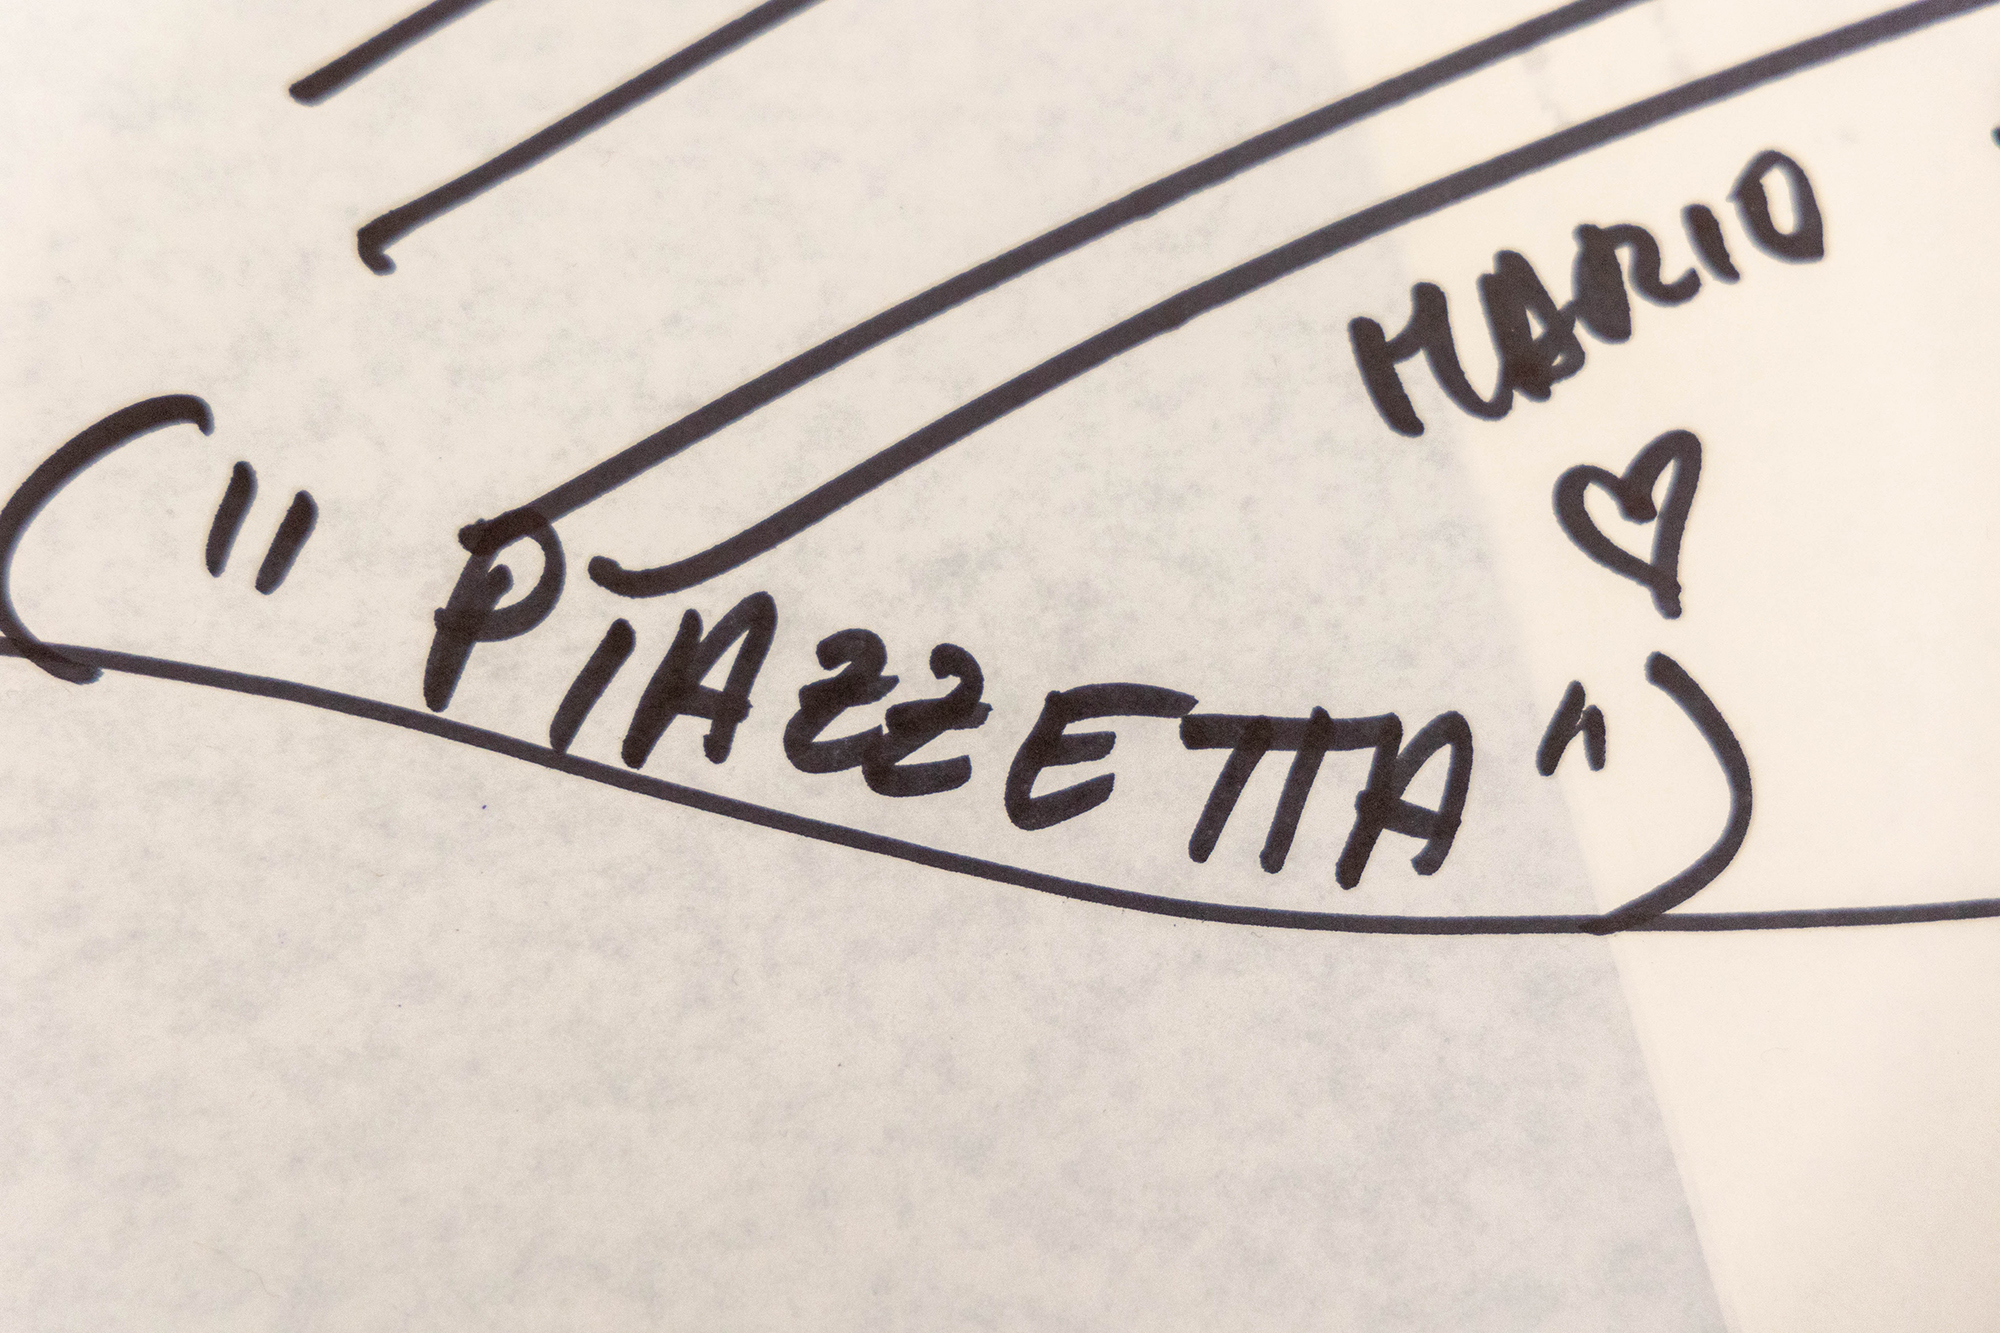 MARIO
("PIAZZETTA")